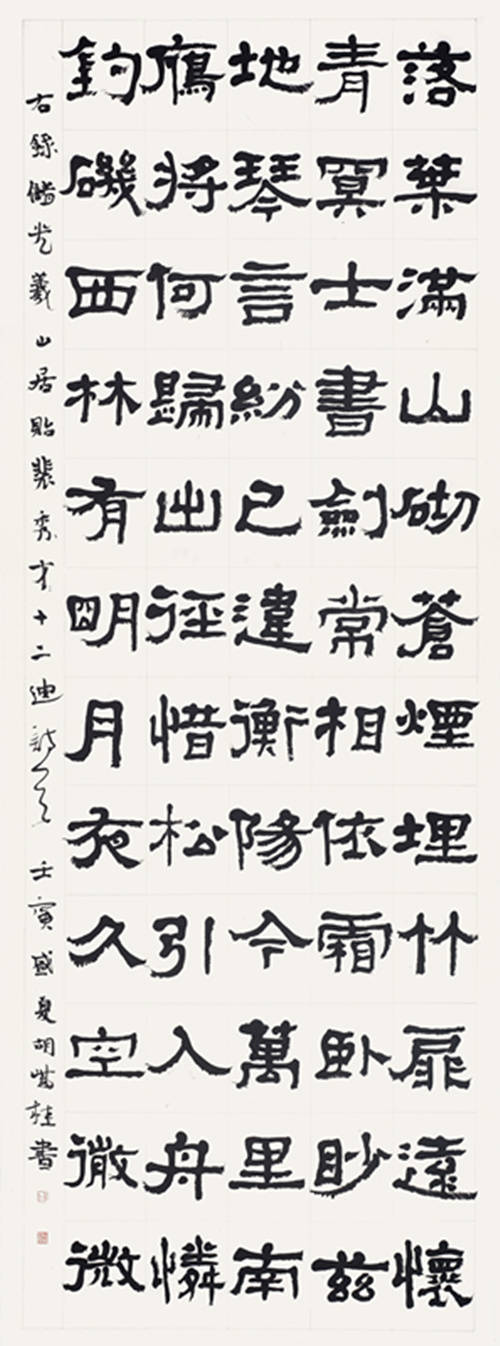 落葉滿山砌蒼煙埋竹扉遠懷
青冥士書劍常相依霜臥眇兹
地琴言紛已違衡陽今萬里南
鴈將何歸出徑惜松引入舟憐
釣磯西林有明月夜久空微微
右錄儲光羲山居貽裴秀才十二迪詩一首 壬寅盛夏胡紫桂書